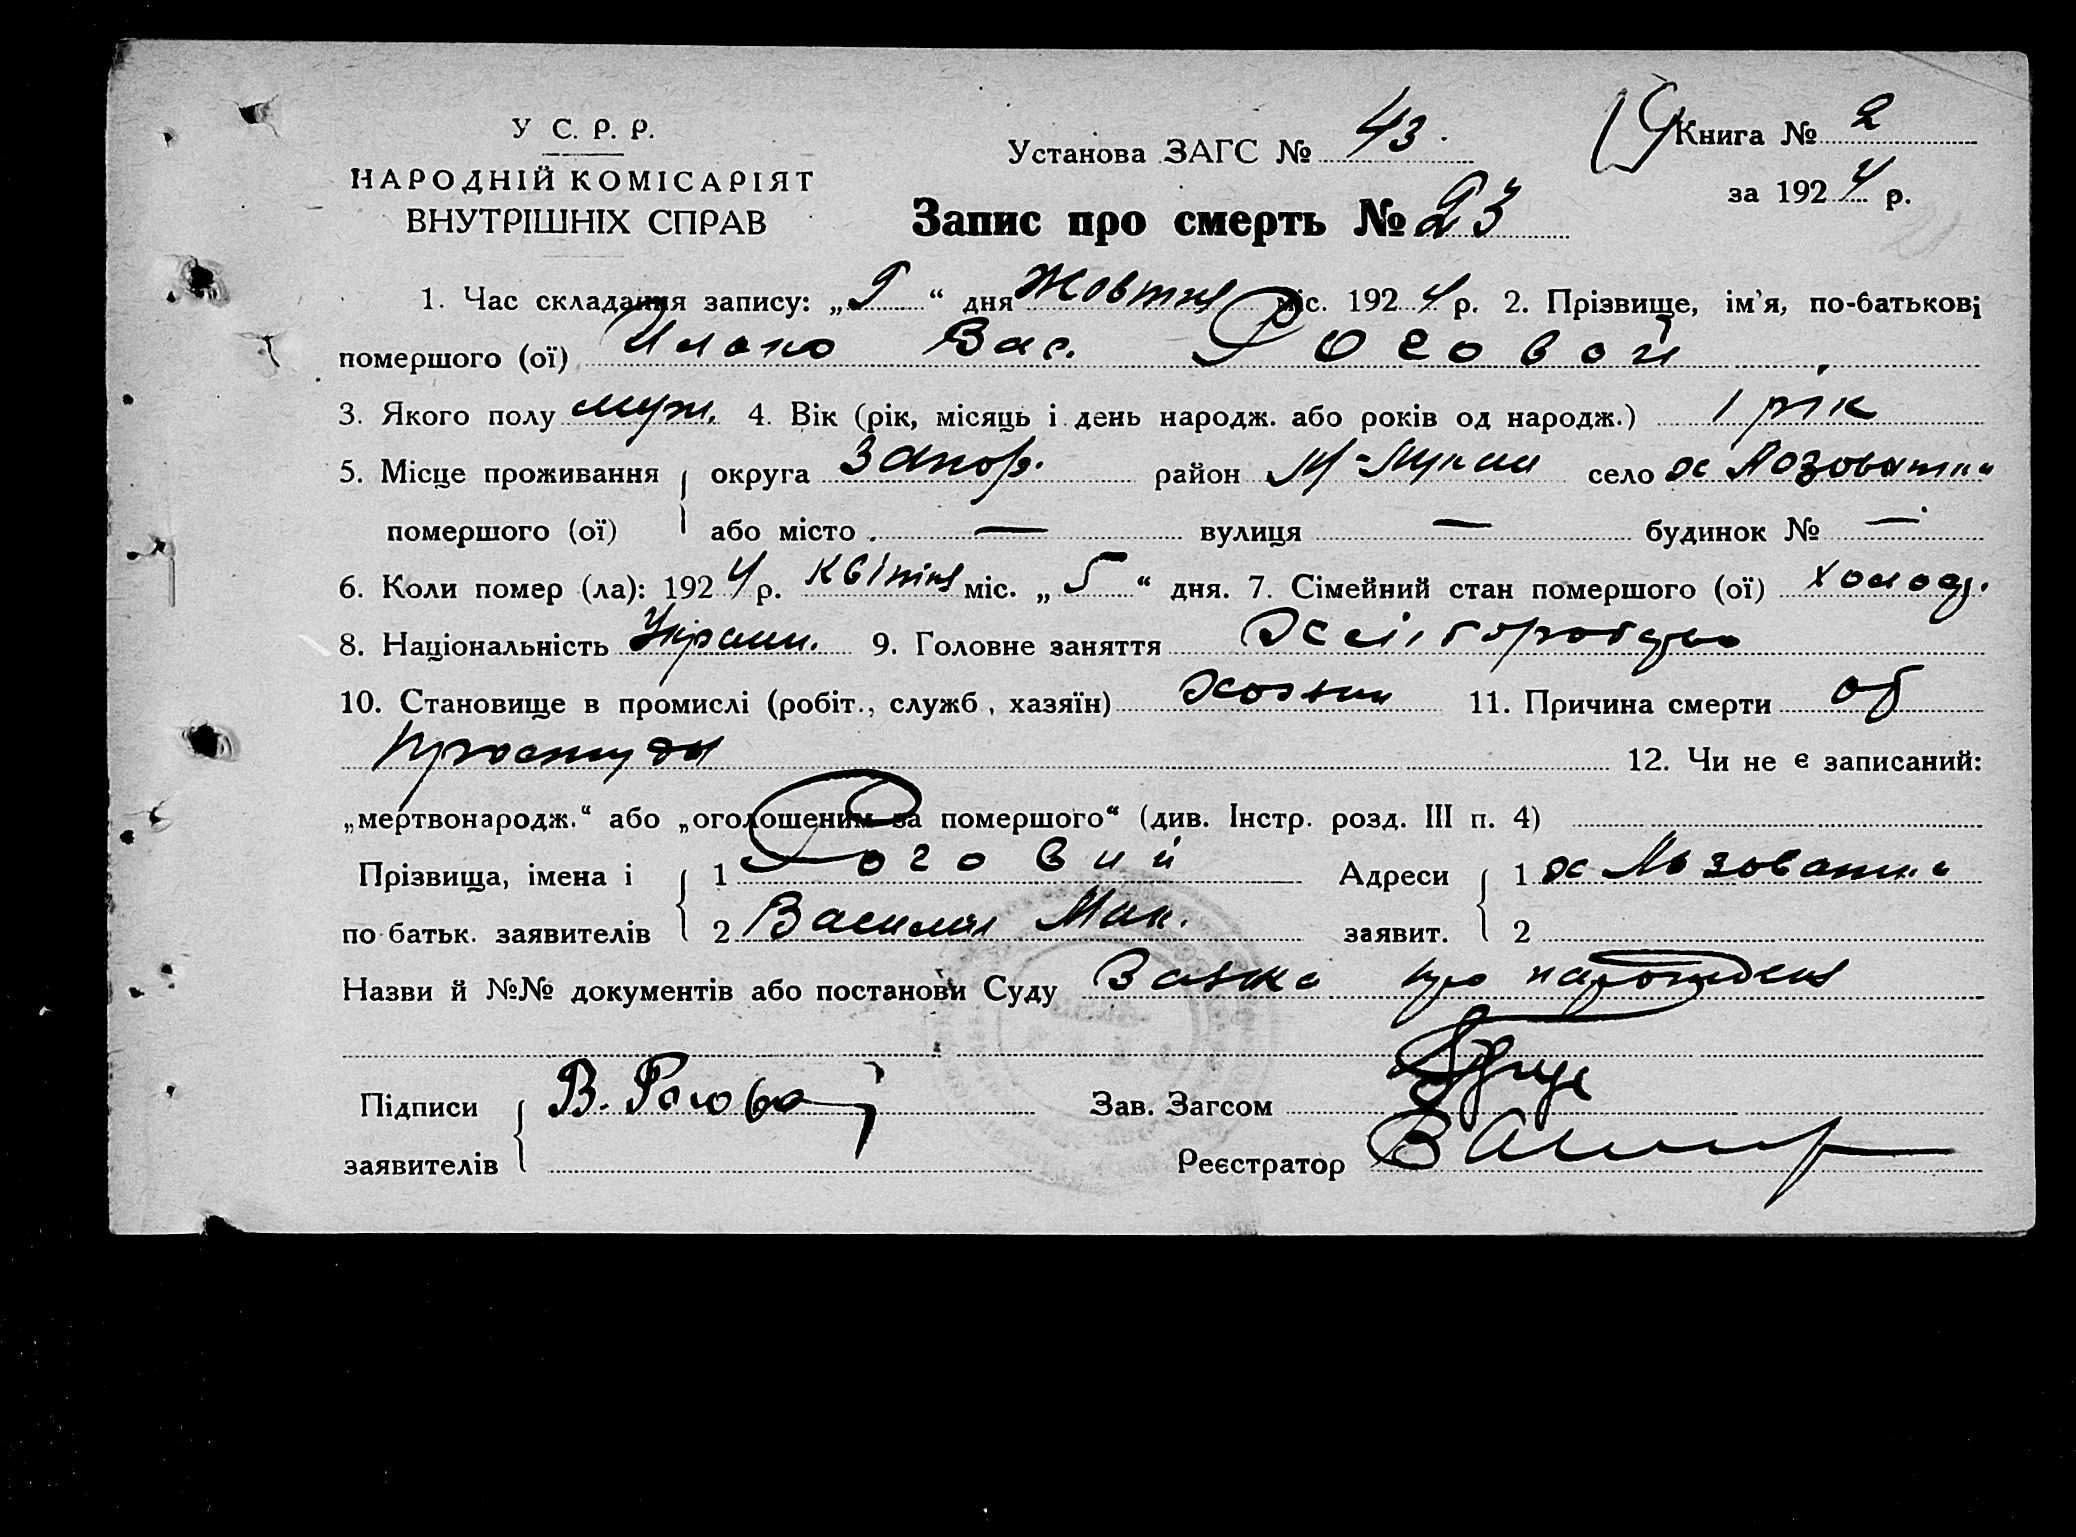 У С. Р. Р.
НАРОДНІЙ КОМІСАРІЯТ
ВНУТРІШНІХ СПРАВ
Установа ЗАГС № 43.
Книга № 2
за 1924 р.
Запис про смерть № 23
1. Час складання запису: „ “ дня Жовтня міс. 1924 р. 2. Прізвище, ім'я, по-батькові
помершого (ої) Вас. Роговой
3. Якого полу муж. 4. Вік (рік, місяць і день народж. або років од народж.) 1 рік
5. Місце проживання округа Запор. район село х Лозоватка
помершого (ої) або місто — вулиця — будинок № —
6. Коли помер (ла): 1924 р. Квітня міс. „5“ дня. 7. Сімейний стан помершого (ої) холод.
8. Національність Україн. 9. Головне заняття
10. Становище в промислі (робіт., служб, хазяїн) 11. Причина смерти об
простуды 12. Чи не є записаний:
„мертвонародж.“ або „оголошеним за помершого“ (див. Інстр. розд. III п. 4)
Прізвища, імена і 1 Роговий Адреси 1 х Лозоватка
по батьк. заявителів 2 Василій Мак. заявит. 2
Назви й №№ документів або постанови Суду про
Підписи В. Роговой Зав. Загсом
заявителів Реєстратор